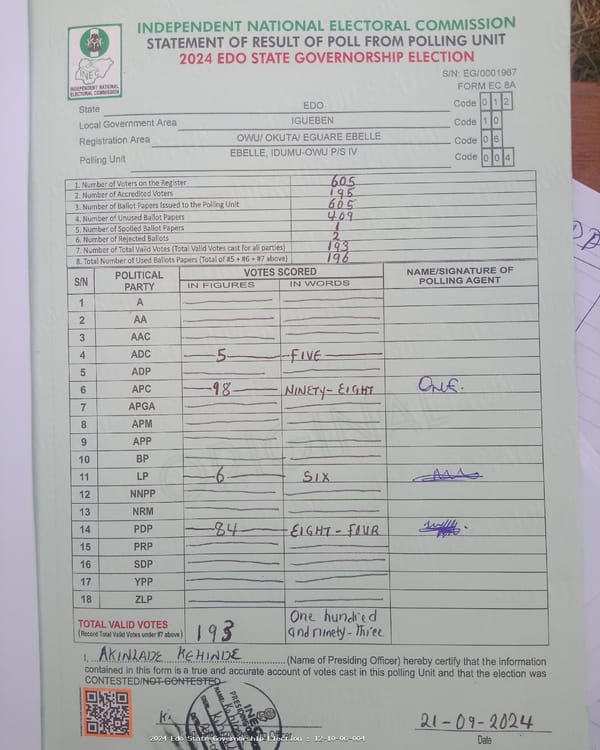 INDEPENDENT NATIONAL ELECTORAL COMMISSION
STATEMENT OF RESULT OF POLL FROM POLLING UNIT
2024 EDO STATE GOVERNORSHIP ELECTION
INEC
INDEPENDENT NATIONAL
ELECTORAL COMMISSION
S/N: EG/0001987
FORM EC 8A
State EDO Code 0 1 2
Local Government Area IGUEBEN Code 1 0
Registration Area OWU/ OKUTA/ EGUARE EBELLE Code 0 6
Polling Unit EBELLE, IDUMU-OWU P/S IV Code 0 0 4
1. Number of Voters on the Register 605
2. Number of Accredited Voters 195
3. Number of Ballot Papers Issued to the Polling Unit 605
4. Number of Unused Ballot Papers 409
5. Number of Spoiled Ballot Papers 1
6. Number of Rejected Ballots 2
7. Number of Total Valid Votes (Total Valid Votes cast for all parties) 193
8. Total Number of Used Ballots Papers (Total of #5 + #6 + #7 above) 196
S/N POLITICAL PARTY VOTES SCORED NAME/SIGNATURE OF POLLING AGENT
IN FIGURES IN WORDS
1 A
2 AA
3 AAC
4 ADC 5 FIVE
5 ADP
6 APC 98 NINETY-EIGHT ONE.
7 APGA
8 APM
9 APP
10 BP
11 LP 6 SIX
12 NNPP
13 NRM
14 PDP 84 EIGHT-FOUR
15 PRP
16 SDP
17 YPP
18 ZLP
TOTAL VALID VOTES 193 One hundred
(Record Total Valid Votes under #7 above) and ninety-three
I, AKINLADE KEHINDE (Name of Presiding Officer) hereby certify that the information
contained in this form is a true and accurate account of votes cast in this polling Unit and that the election was
CONTESTED/NOT CONTESTED
21-09-2024
Date
2024 Edo State Governorship Election : 12-10-06-004